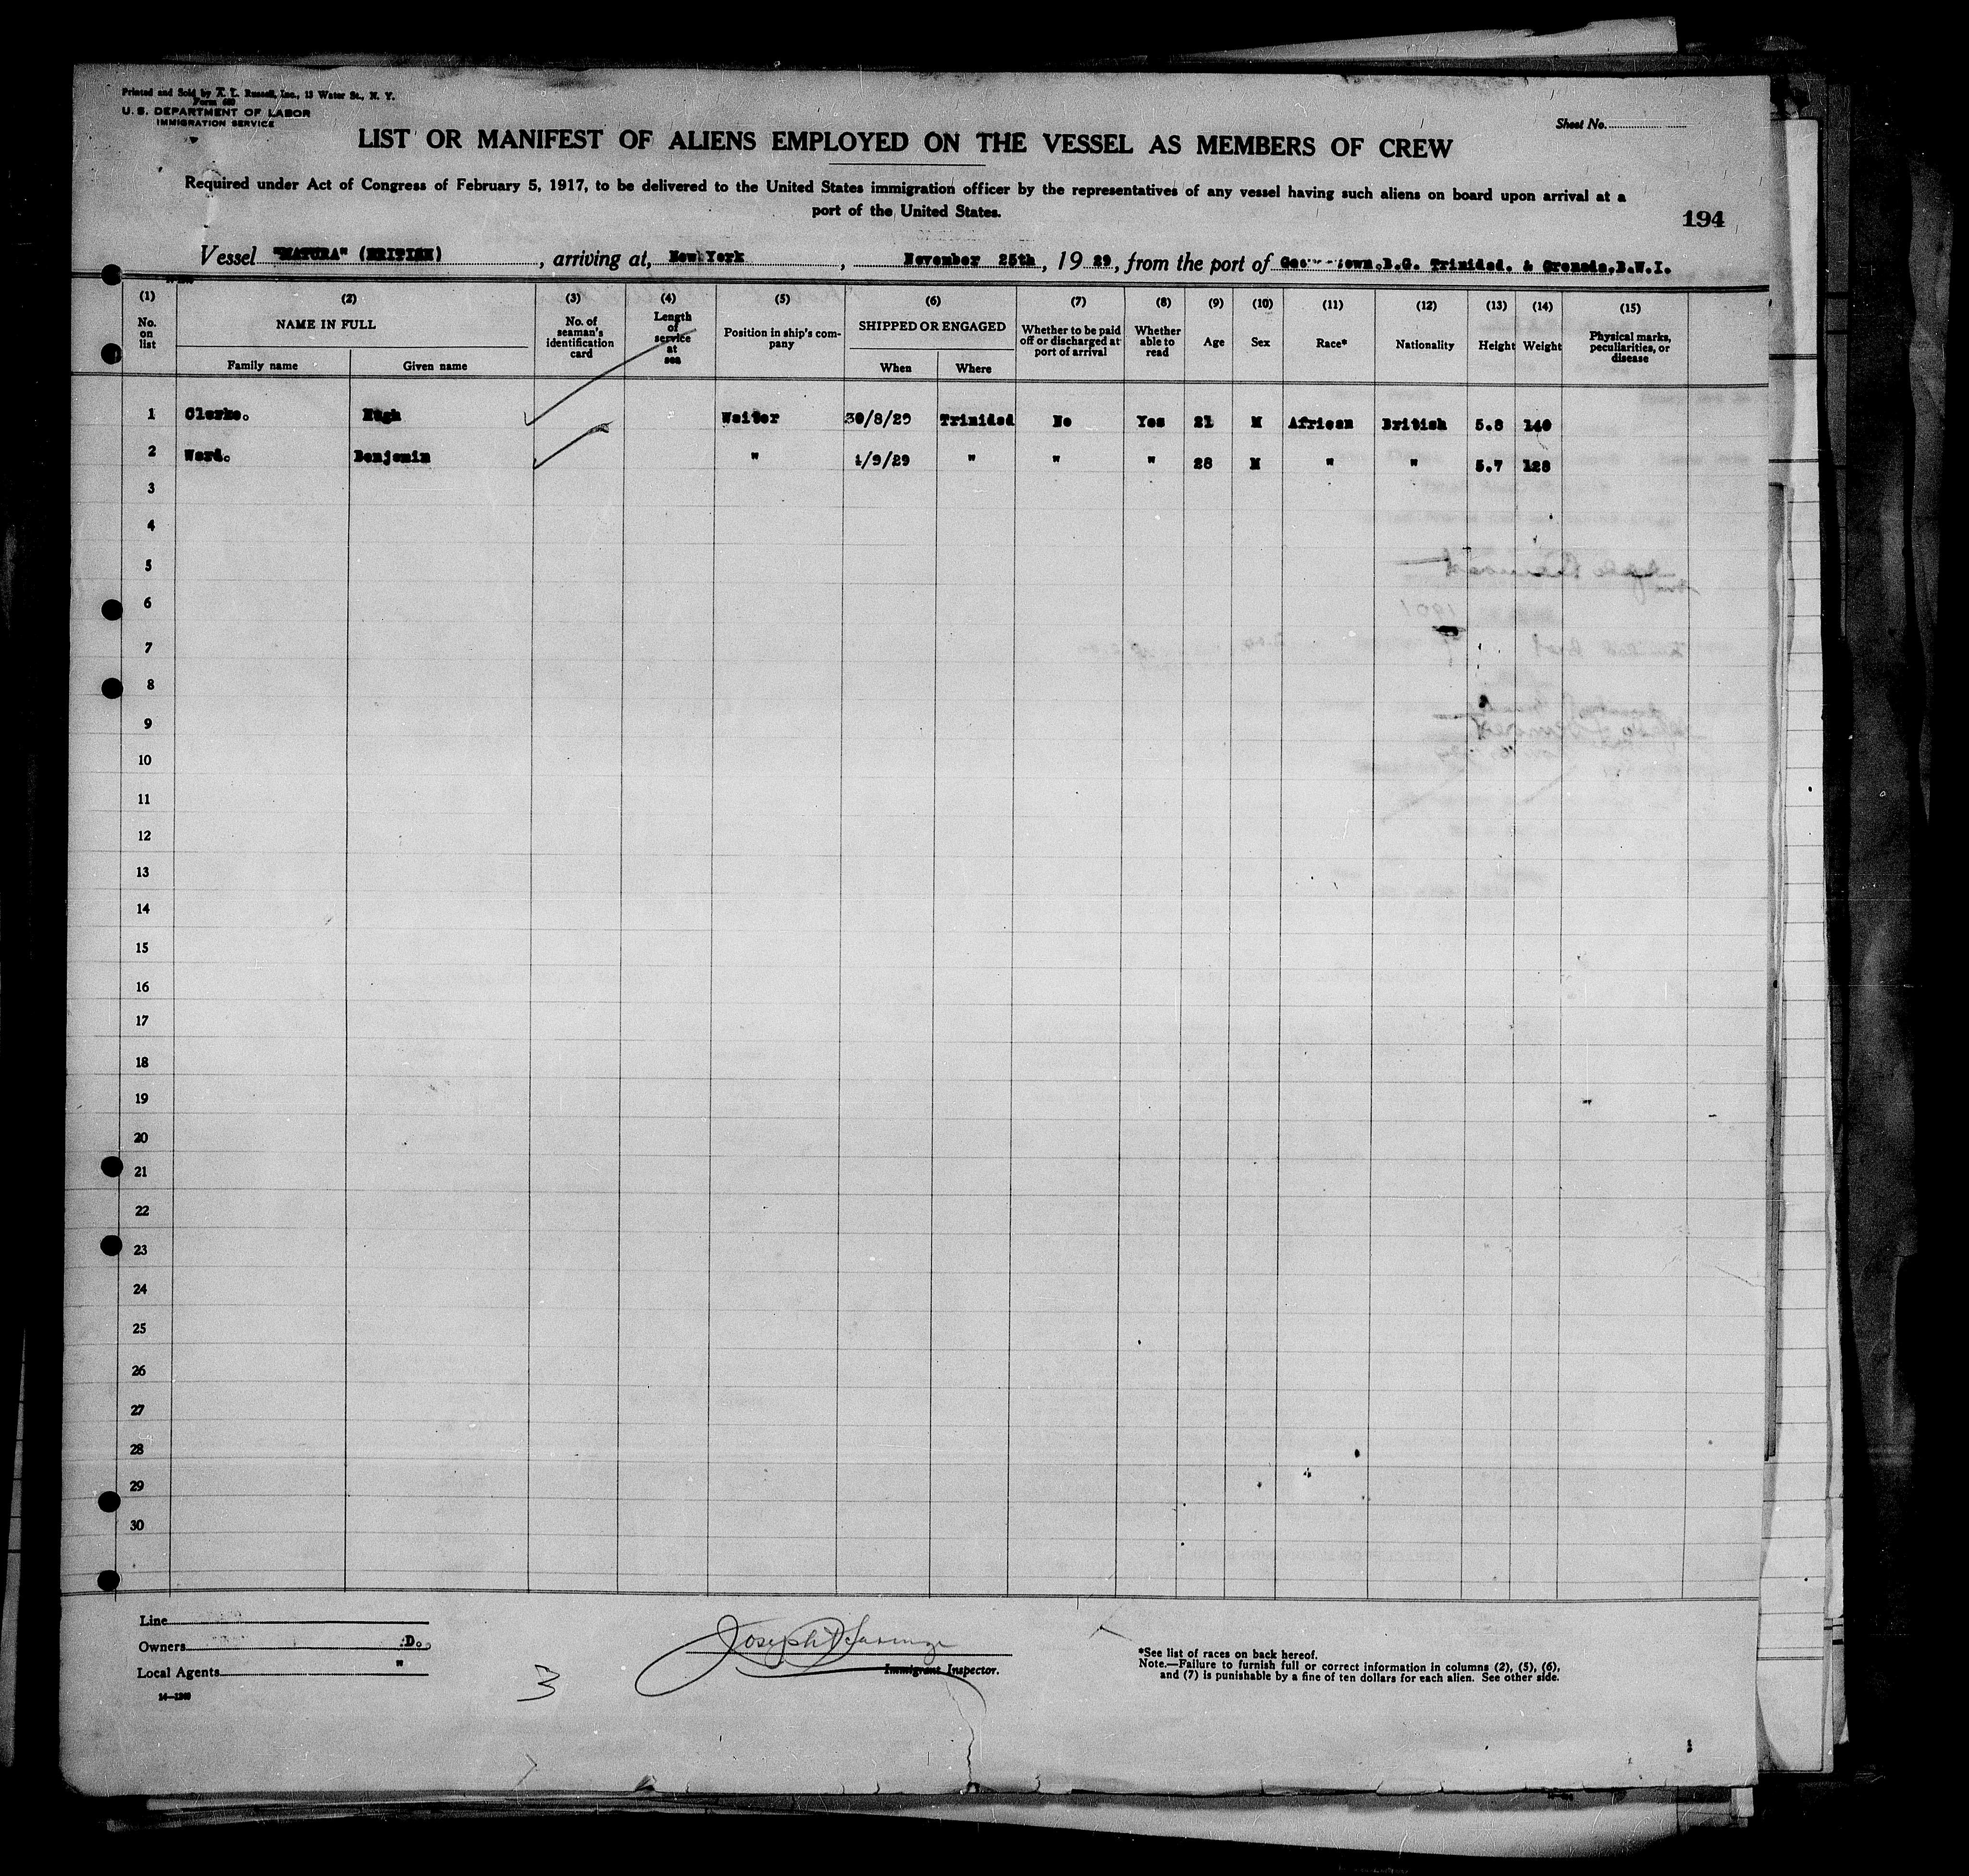 Printed and Sold by A. L. Russell, Inc., 13 Water St., N. Y.
Form 689
U. S. DEPARTMENT OF LABOR
IMMIGRATION SERVICE
Sheet No.
LIST OR MANIFEST OF ALIENS EMPLOYED ON THE VESSEL AS MEMBERS OF CREW
Required under Act of Congress of February 5, 1917, to be delivered to the United States immigration officer by the representatives of any vessel having such aliens on board upon arrival at a
port of the United States.
194
Vessel "MATURA" (BRITISH), arriving at, New York, November 25th, 1929, from the port of Georgetown.B.G. Trinidad. & Grenada.B.W.I.
(1) (2) (3) (4) (5) (6) (7) (8) (9) (10) (11) (12) (13) (14) (15)
No. on list NAME IN FULL No. of seaman's identification card Length of service at sea Position in ship's company SHIPPED OR ENGAGED Whether to be paid off or discharged at port of arrival Whether able to read Age Sex Race* Nationality Height Weight Physical marks, peculiarities, or disease
Family name Given name When Where
1 Clerke. Hugh Waiter 30/8/29 Trinidad No Yes 21 M African British 5.8 140
2 Ward. Benjamin " 1/9/29 " " " 28 M " " 5.7 128
3
4
5
6
7
8
9
10
11
12
13
14
15
16
17
18
19
20
21
22
23
24
25
26
27
28
29
30
Line
Owners Do.
Local Agents "
14—1240
3
Immigrant Inspector.
*See list of races on back hereof.
Note.—Failure to furnish full or correct information in columns (2), (5), (6),
and (7) is punishable by a fine of ten dollars for each alien. See other side.